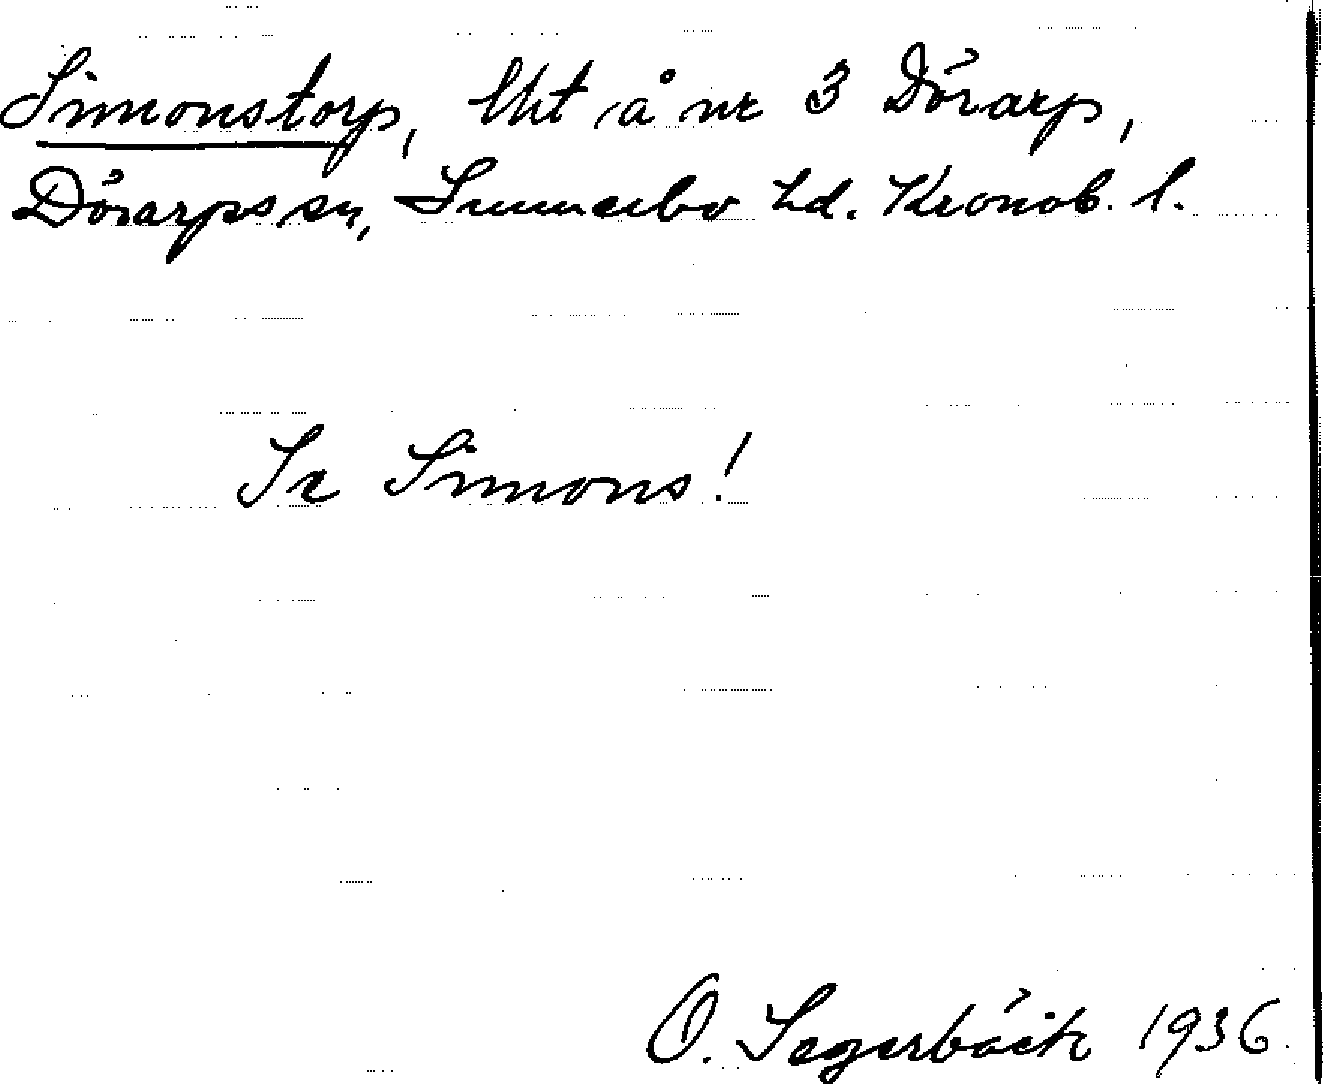 Simonstorp, lht å nr 3 Dörarp,
Dörarps sn, Sunnerbo hd. Kronob. l.
Se Simons!
O. Segerbäck 1936